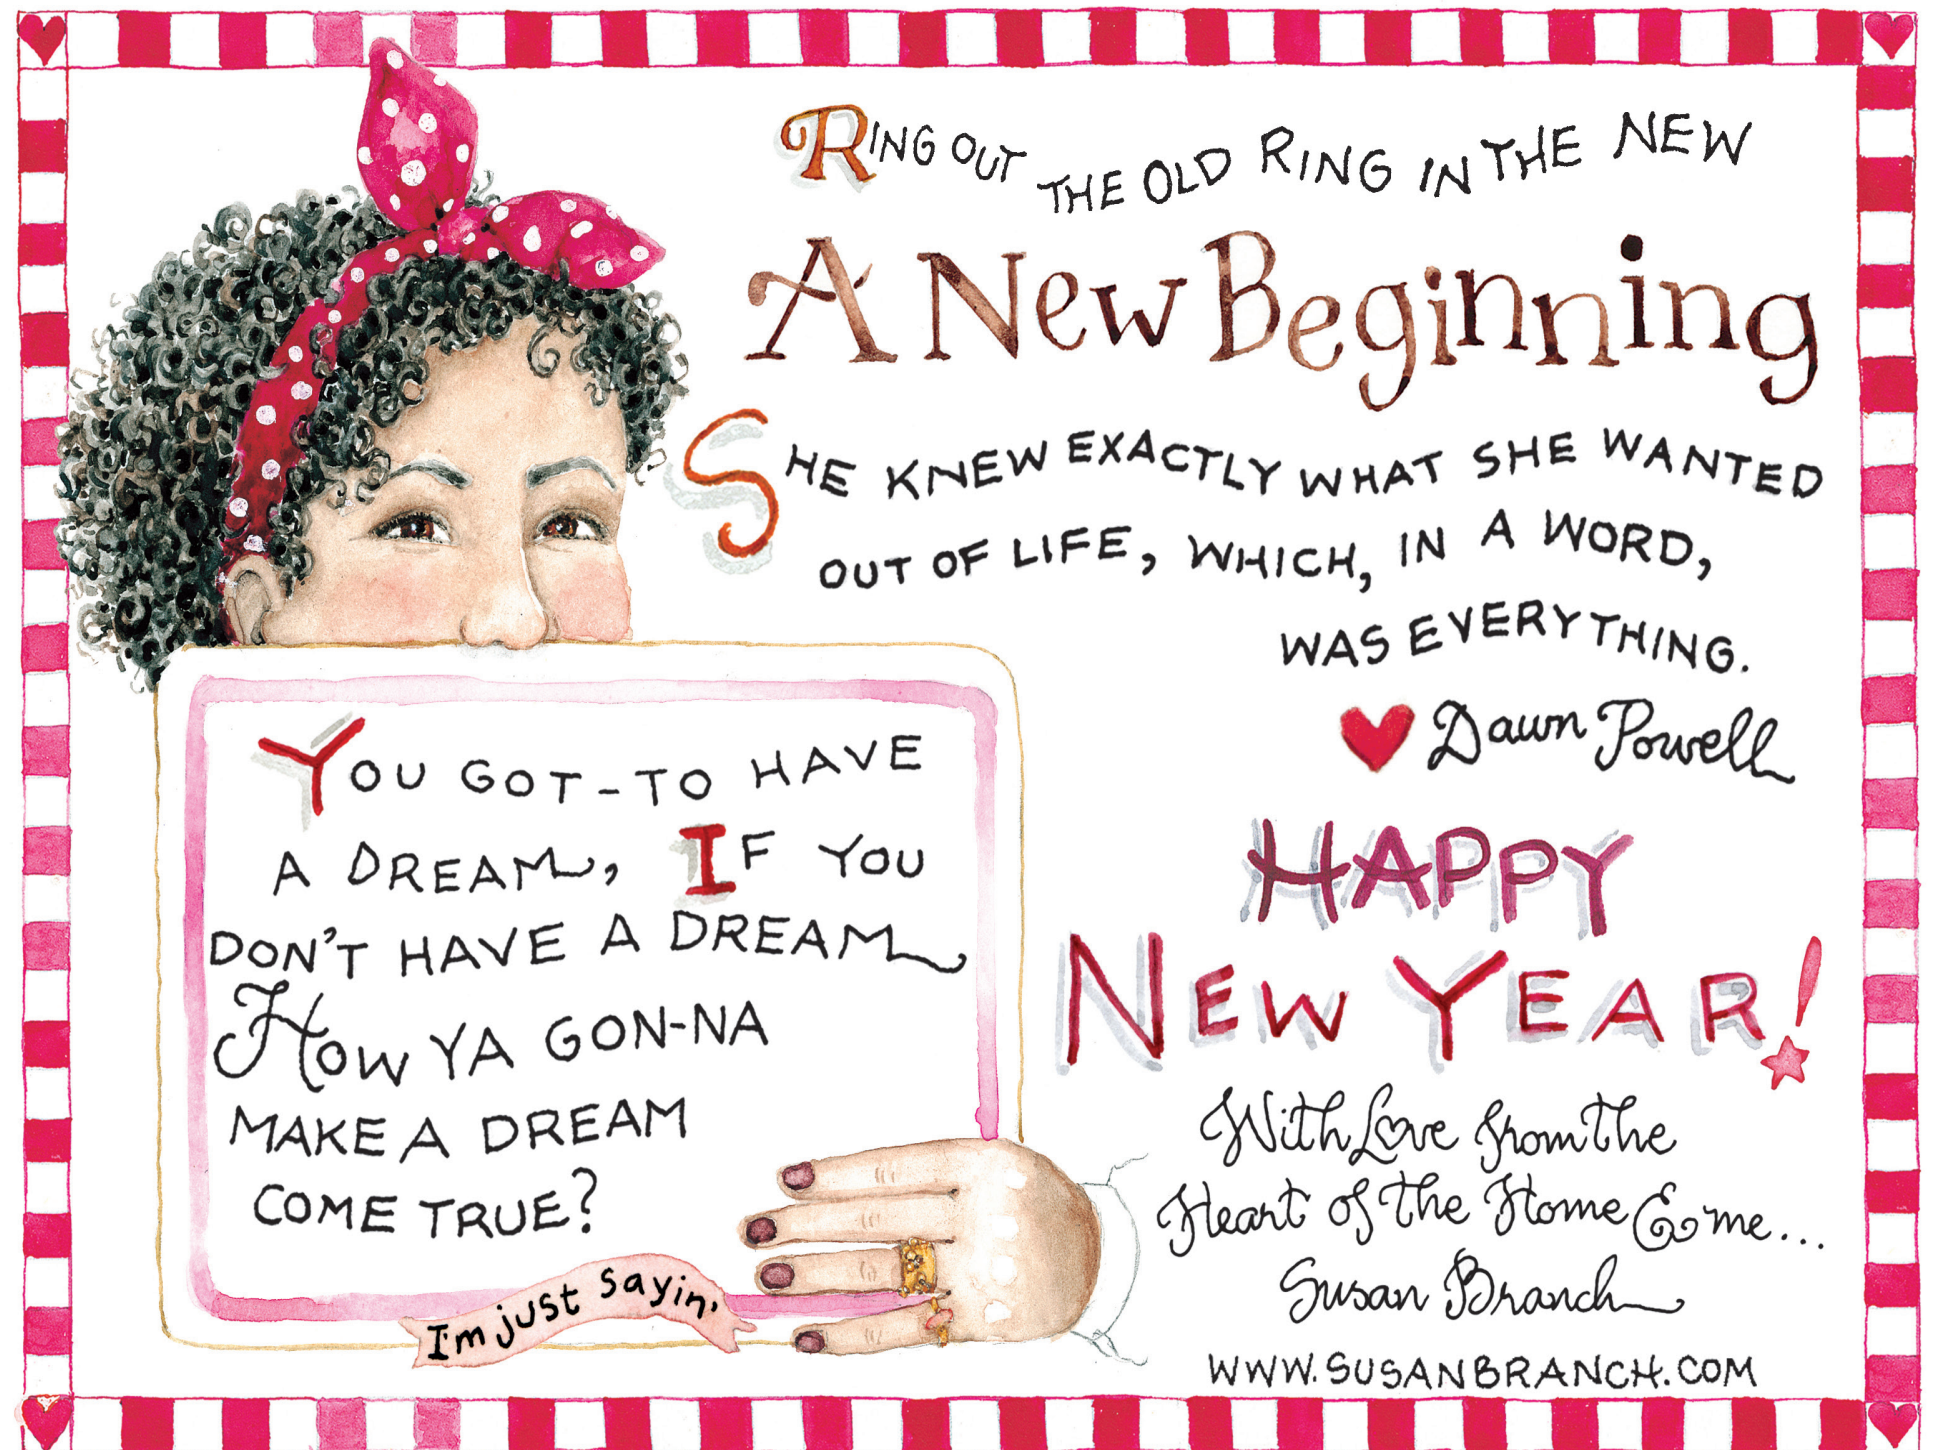 RING OUT THE OLD RING IN THE NEW
A New Beginning
SHE KNEW EXACTLY WHAT SHE WANTED
OUT OF LIFE, WHICH, IN A WORD,
WAS EVERYTHING.
Dawn Powell
YOU GOT-TO HAVE
A DREAM, IF YOU
DON'T HAVE A DREAM
HOW YA GON-NA
MAKE A DREAM
COME TRUE?
I'm just sayin'
HAPPY
NEW YEAR!
With Love from the
Heart of the Home & me...
Susan Branch
WWW.SUSANBRANCH.COM